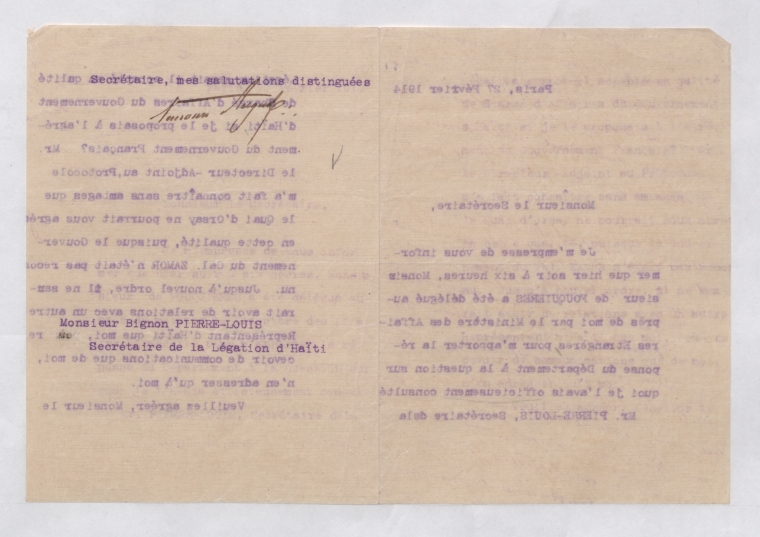 Secrétaire, mes salutations distinguées
Monsieur Bignon PIERRE-LOUIS
Secrétaire de la Légation d'Haïti
Paris, 27 Février 1914
Monsieur le Secrétaire,
Je m'empresse de vous infor-
mer que hier soir à six heures,
sieur de FOUQUIERES a été délégué au-
près de moi par le Ministère des Affai-
res Etrangères pour m'apporter la ré-
ponse du Département à la question sur
quoi je l'avais officieusement consulté
Mr. PIERRE-LOUIS, Secrétaire dela
qualité
d'Affaires du Gouvernement
d'Haïti si je le proposais à l'agré-
ment du Gouvernement Français? Mr.
le Directeur -Adjoint au Protocole
m'a fait connaître sans ambages que
le Quai d'Orsay ne pourrait vous agré
en cette qualité, puisque le Gouver-
nement du Gal. ZAMOR n'était pas recon
nu. Jusqu'à nouvel ordre, il ne sau-
rait avoir de relations avec un autre
Représentant d'Haïti que moi, re
cevoir de communications que de moi,
n'en adresser qu'à moi.
Veuillez agréer, Monsieur le